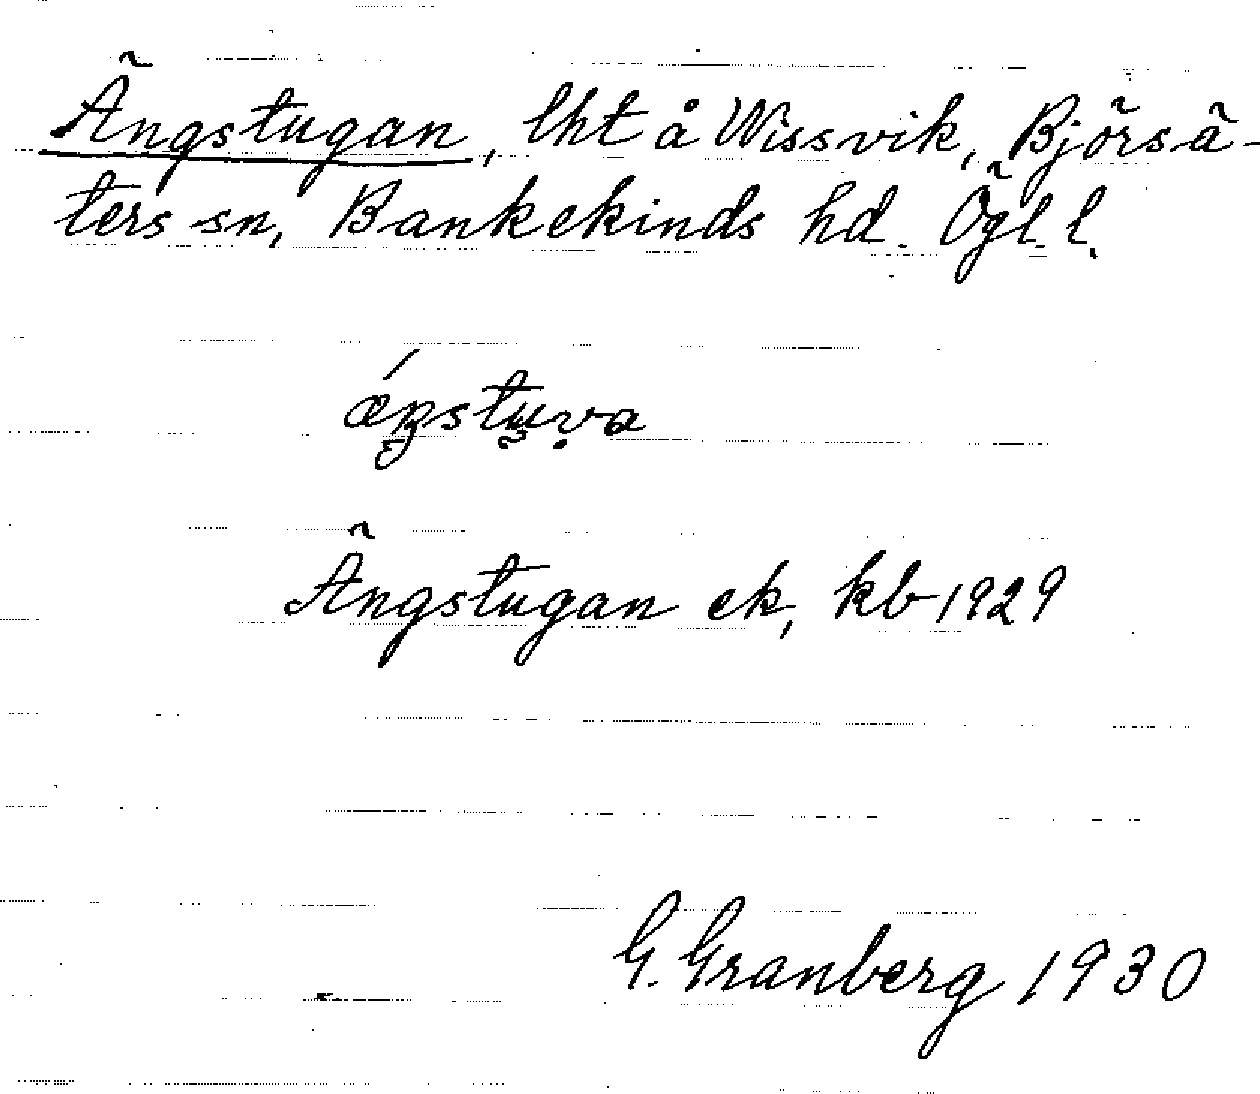 Ängstugan, lht å Wissvik, Björsä-
ters sn, Bankekinds hd. Ögl l.
ǽŋstuva
Ängstugan ek, kb 1929
G. Granberg 1930